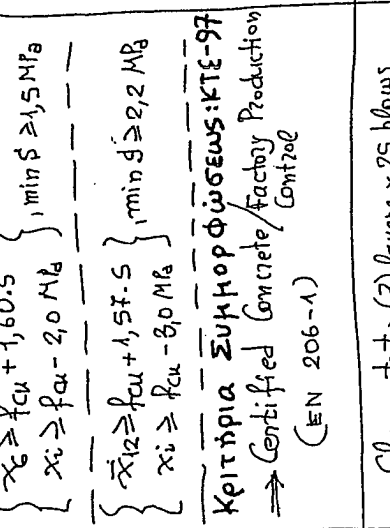 x̄6 ≥ fcu + 1,60·s } , min s ≥ 1,5 MPa
xi ≥ fcu - 2,0 MPa
x̄12 ≥ fcu + 1,57·s } , min s ≥ 2,2 MPa
xi ≥ fcu - 3,0 MPa
Κριτήρια Συμμορφώσεως: ΚΤΕ-97
⇒ Certified Concrete/Factory Production
Control
(EN 206-1)
(3) layers x 25 blows